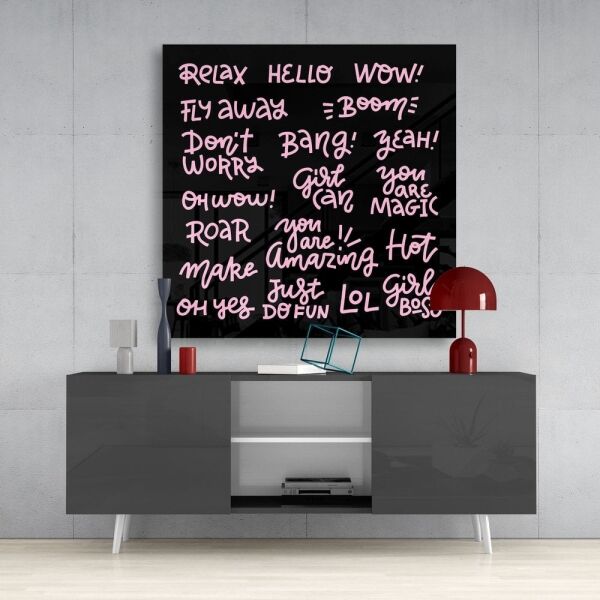 Relax HELLO WOW!
FLY away BOOM
Don't WORRY Bang! YEAH!
OH WOW! Girl Can you ARE MAGIC
ROAR you are Amazing Hot
make
OH yes Just DO FUN LOL Girl BOSS